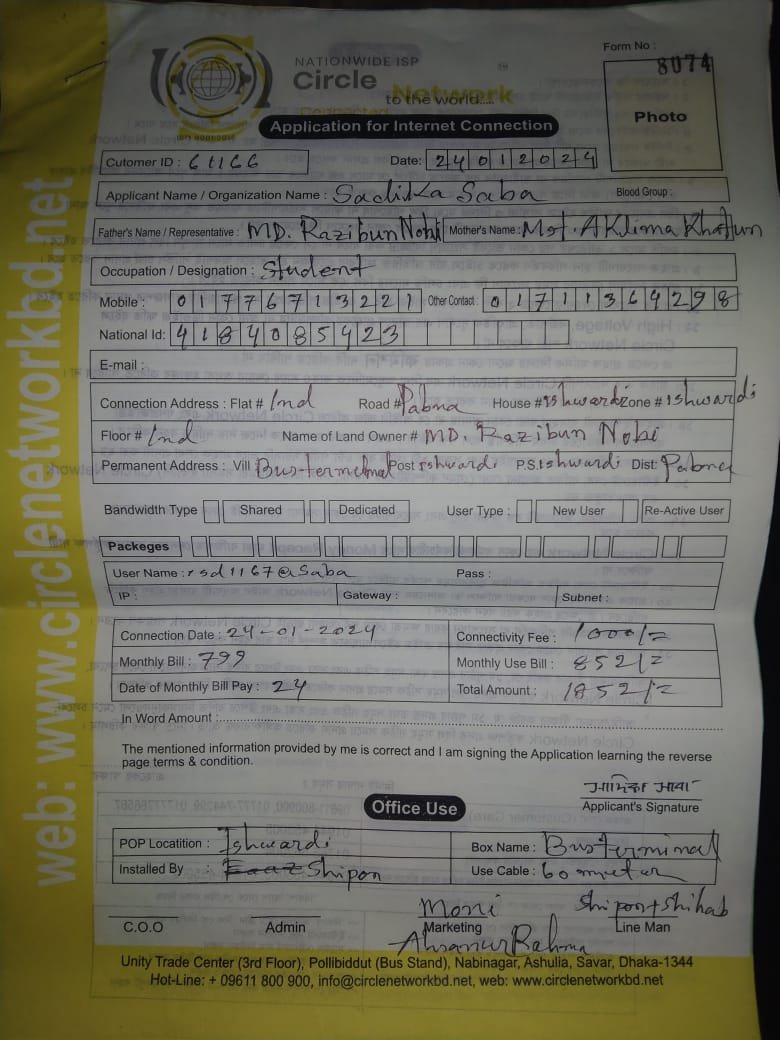 Form No :
8074
NATIONWIDE ISP
Circle Network
to the world....
ISO 9001:2015
Photo
Application for Internet Connection
Cutomer ID : 61166 Date: 24012024
Applicant Name / Organization Name : Sadika Saba Blood Group :
Father's Name / Representative : MD. Razibun Nobi Mother's Name : Mst. Aklima Khatun
Occupation / Designation : Student
Mobile : 01776713221 Other Contact : 01711364298
National Id: 4184085423
E-mail :
Connection Address : Flat # Ind Road # Pabna House # Ishwardi Zone # Ishwardi
Floor # Ind Name of Land Owner # MD. Razibun Nobi
Permanent Address : Vill Bus-termelnal Post Ishwardi P.S. Ishwardi Dist: Pabna
Bandwidth Type Shared Dedicated User Type : New User Re-Active User
Packeges
User Name : rsd1167@Saba Pass :
IP : Gateway : Subnet :
Connection Date : 24-01-2024 Connectivity Fee : 1000/=
Monthly Bill : 799 Monthly Use Bill : 852/=
Date of Monthly Bill Pay : 24 Total Amount : 1852/=
In Word Amount :
The mentioned information provided by me is correct and I am signing the Application learning the reverse
page terms & condition.
সাদিকা সাবা
Applicant's Signature
Office Use
POP Locatition : Ishwardi Box Name : Bus terminal
Installed By : Shipon Use Cable : 60 miter
Moni Shipon+Shihab
C.O.O Admin Marketing Line Man
Unity Trade Center (3rd Floor), Pollibiddut (Bus Stand), Nabinagar, Ashulia, Savar, Dhaka-1344
Hot-Line: + 09611 800 900, info@circlenetworkbd.net, web: www.circlenetworkbd.net
web: www.circlenetworkbd.net